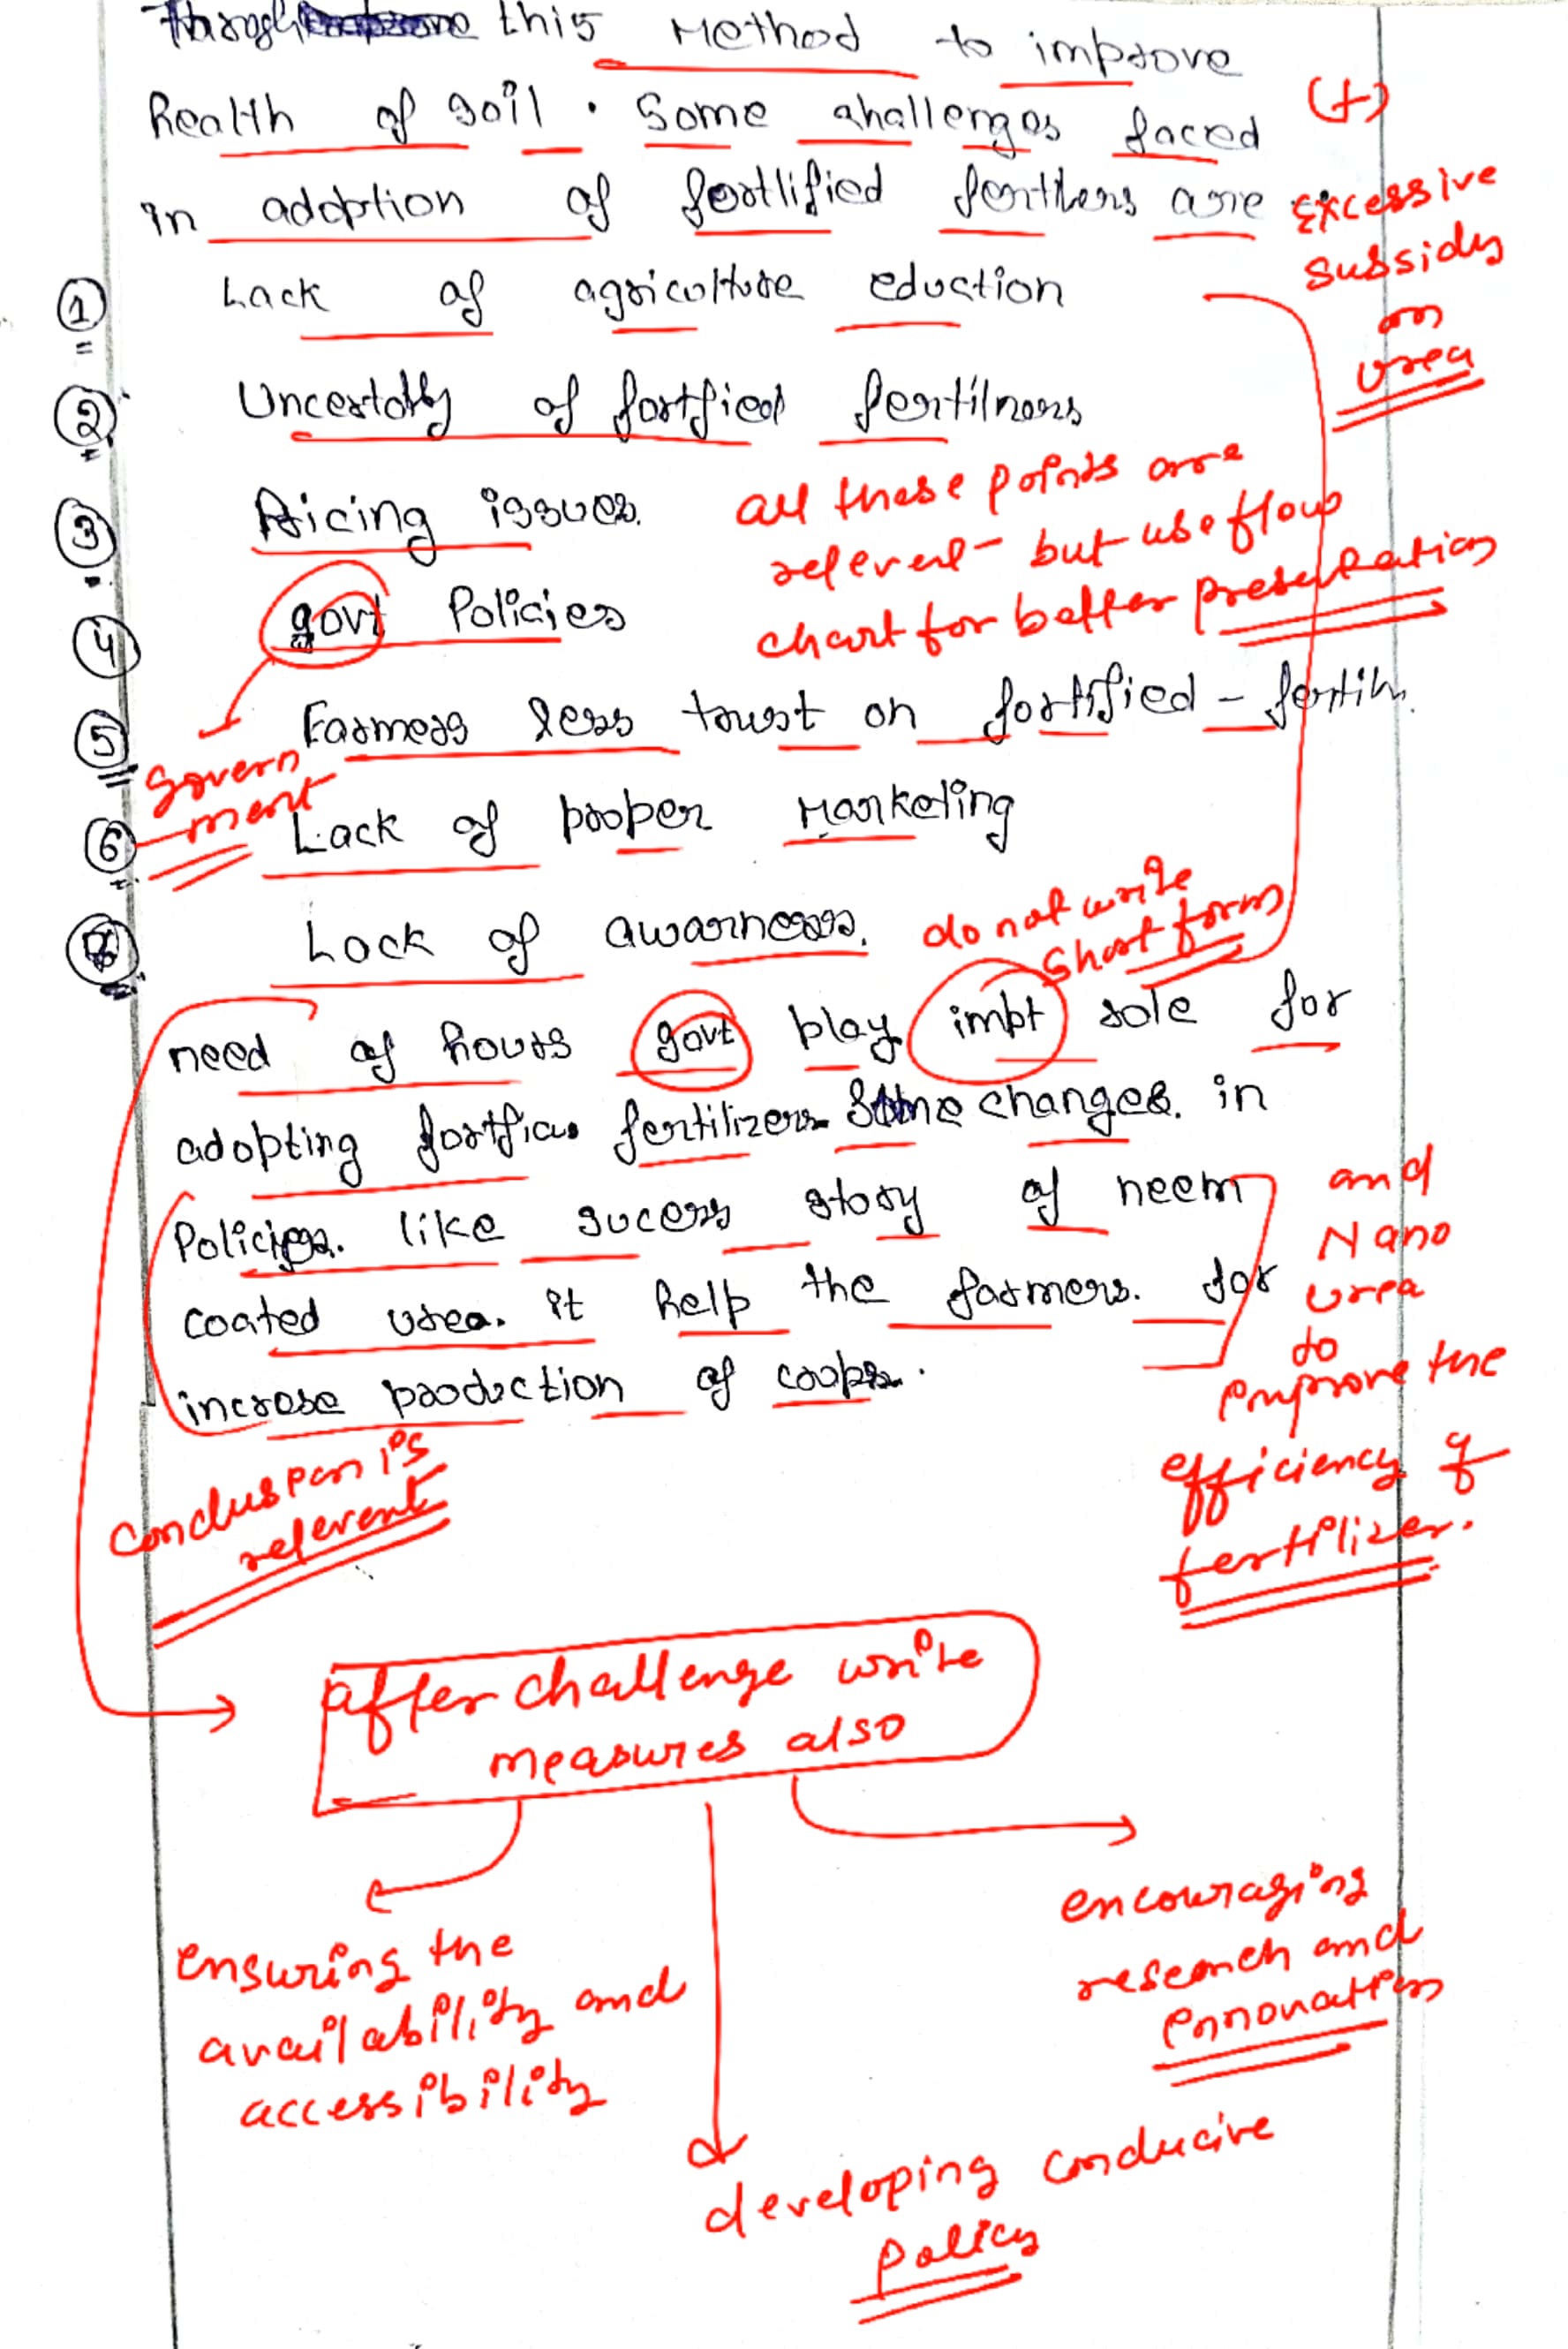 Through this Method to improve
Health of soil. Some challenges faced
in adoption of fortlified fertilers are
(+)
Excessive
subsidy
on
urea
① Lack of agriculture eduction
② of fortfied
③ Pricing issues.
all these points are
relevent but use flow
chart for better presentation
④ govt Policies
⑤ Farmers less trust on fortified - fertili.
govern
ment
⑥ Lack of proper Marketing
Lack of awarness.
do not write
short form
need of hours govt play impt role for
adopting fertilizers Some changes. in
Policies. like sucess story of neem
coated urea. it help the farmers. for
increse production of crops.
and
Nano
urea
to
improve the
efficiency of
fertilizer.
conclusion is
relevent
after challenge write
measures also
ensuring the
availability and
accessibility
developing conducive
policy
encouraging
research and
innovation